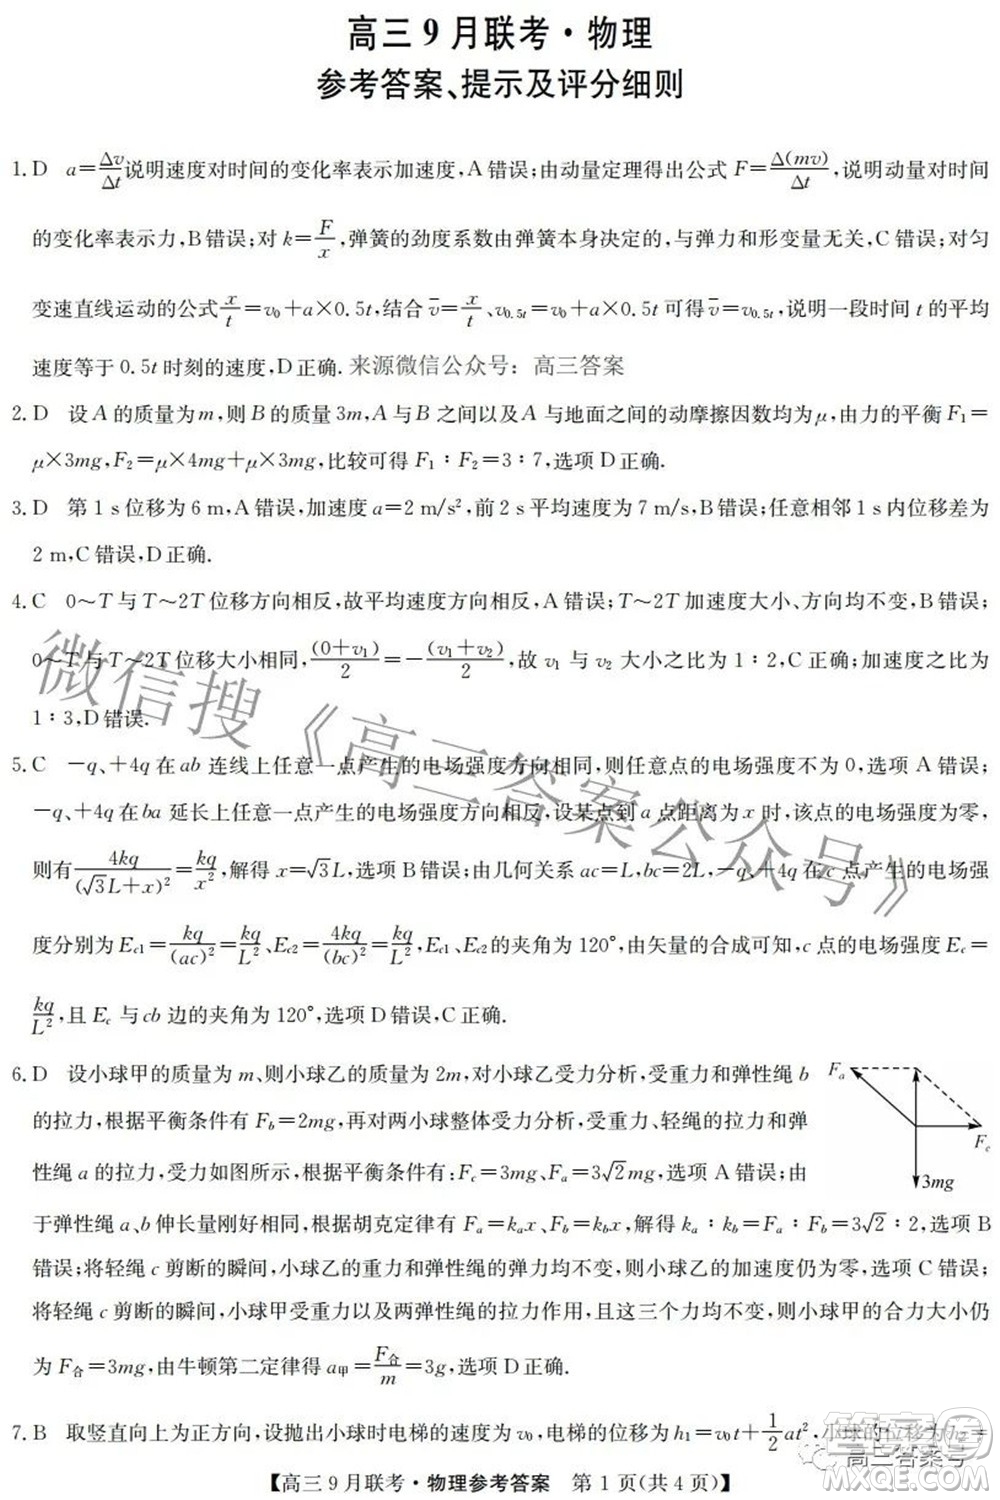 高三9月联考·物理
参考答案、提示及评分细则
1. D a=Δv/Δt说明速度对时间的变化率表示加速度,A错误;由动量定理得出公式 F=Δ(mv)/Δt,说明动量与时间
的变化率表示力,B错误;对 k=F/x,弹簧的劲度系数由弹簧本身决定的,与弹力和形变量无关,C错误;对匀
变速直线运动的公式x/t=v₀+a×0.5t,结合 v̄=x/t、v₀.₅ₜ=v₀+a×0.5t 可得 v̄=v₀.₅ₜ,说明一段时间 t 的平均
速度等于 0.5t 时刻的速度,D正确. 来源微信公众号:高三答案
2. D 设 A 的质量为 m,则 B 的质量 3m,A 与 B 之间以及A 与地面之间的动摩擦因数均为 μ,由力的平衡 F₁=
μ×3mg,F₂=μ×4mg+μ×3mg,比较可得 F₁∶F₂=3∶7,选项 D正确.
3. D 第 1 s 位移为 6 m,A错误,加速度 a=2 m/s²,前 2 s 平均速度为 7 m/s,B错误;任意相邻 1 s 内位移差为
2 m,C 错误,D正确.
4. C 0～T 与 T～2T 位移方向相反,故平均速度方向相反,A错误;T～2T 加速度大小、方向均不变,B错误;
0～T 与 T～2T 位移大小相同,(0+v₁)/2=−(v₁+v₂)/2,故 v₁ 与 v₂ 大小之比为 1∶2,C 正确;加速度之比为
1∶3,D错误.
5. C −q、+4q 在 ab 连线上任意一点产生的电场强度方向相同,则任意一点的电场强度不为 0,选项 A 错误;
−q、+4q 在 ba 延长上任意一点产生的电场强度方向相反,设某点到 a 点距离为 x 时,该点的电场强度为零,
则有4kq/(√3L+x)²=kq/x²,解得 x=√3L,选项 B错误;由几何关系 ac=L,bc=2L,−q、+4q 在 c 点产生的电场强
度分别为 E_c1=kq/(ac)²=kq/L²、E_c2=4kq/(bc)²=kq/L²,E_c1、E_c2的夹角为 120°,由矢量的合成可知,c 点的电场强度 E_c=
kq/L²,且 E_c 与 cb 边的夹角为 120°,选项 D错误,C 正确.
6. D 设小球甲的质量为 m、则小球乙的质量为 2m,对小球乙受力分析,受重力和弹性绳 b
的拉力,根据平衡条件有 F_b=2mg,再对两小球整体受力分析,受重力、轻绳的拉力和弹
性绳 a 的拉力,受力如图所示,根据平衡条件有:F_c=3mg、F_a=3√2mg,选项 A 错误;由
于弹性绳 a、b 伸长量刚好相同,根据胡克定律有 F_a=k_a x、F_b=k_b x,解得 k_a∶k_b=F_a∶F_b=3√2∶2,选项 B
错误;将轻绳 c 剪断的瞬间,小球乙的重力和弹性绳的弹力均不变,小球乙的加速度仍为零,选项 C 错误;
将轻绳 c 剪断的瞬间,小球甲受重力以及两弹性绳的拉力作用,且这三个力均不变,则小球甲的合力大小仍
为 F合=3mg,由牛顿第二定律得 a甲=F合/m=3g,选项 D正确.
F_a
F_c
3mg
7. B 取竖直向上为正方向,设抛出小球时电梯的速度为 v₀,电梯的位移为 h₁=v₀t+½at²,小球的位移为 h₂=
【高三9月联考·物理参考答案 第 1 页(共 4 页)】
微信搜《高三答案公众号》
高三答案号
答案圈
MXQE.COM